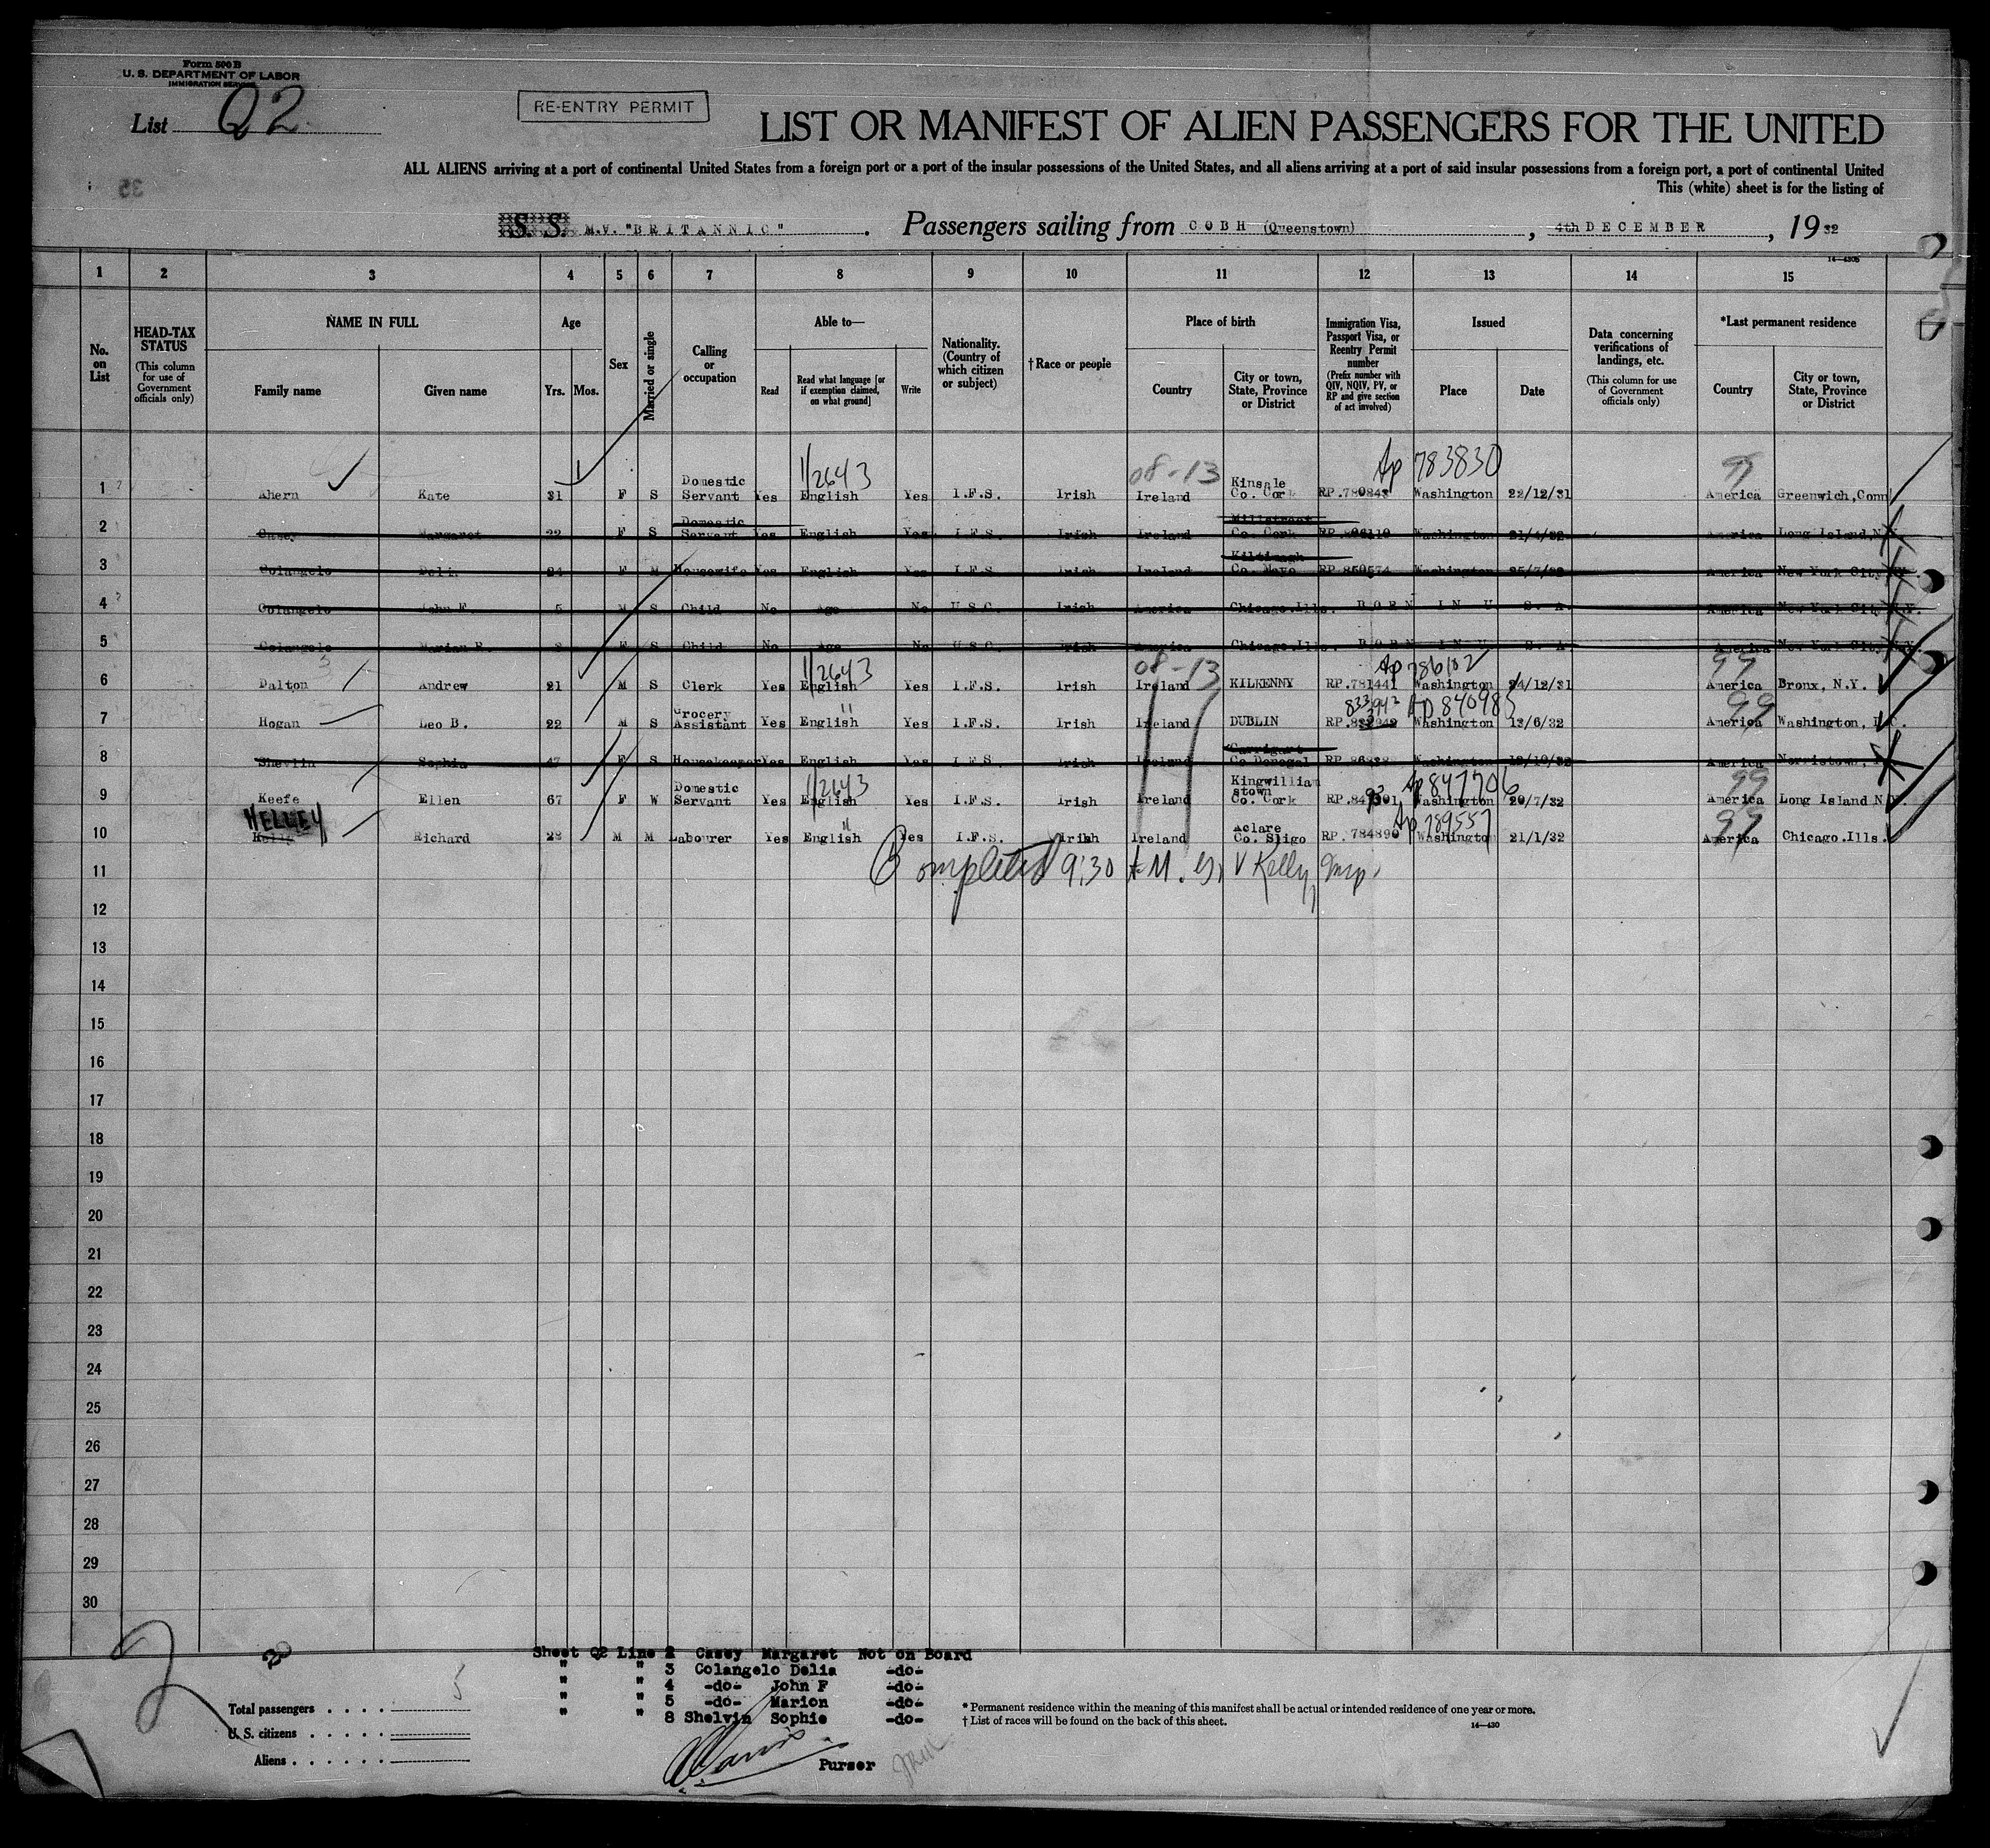 Form 500 B
U. S. DEPARTMENT OF LABOR
IMMIGRATION SERVICE
List Q2
RE-ENTRY PERMIT
LIST OR MANIFEST OF ALIEN PASSENGERS FOR THE UNITED
ALL ALIENS arriving at a port of continental United States from a foreign port or a port of the insular possessions of the United States, and all aliens arriving at a port of said insular possessions from a foreign port, a port of continental United
This (white) sheet is for the listing of
35
S. S. M.V. "BRITANNIC" . Passengers sailing from COBH (Queenstown) , 4th DECEMBER , 19 32
14-430B
1 2 3 4 5 6 7 8 9 10 11 12 13 14 15
No. on List
HEAD-TAX STATUS
(This column for use of Government officials only)
NAME IN FULL
Family name Given name
Age
Yrs. Mos.
Sex
Married or single
Calling or occupation
Able to—
Read Read what language [or if exemption claimed, on what ground] Write
Nationality. (Country of which citizen or subject)
†Race or people
Place of birth
Country City or town, State, Province or District
Immigration Visa, Passport Visa, or Reentry Permit number
(Prefix number with QIV, NQIV, PV, or RP and give section of act involved)
Issued
Place Date
Data concerning verifications of landings, etc.
(This column for use of Government officials only)
*Last permanent residence
Country City or town, State, Province or District
1/2643 08-13 Ap 783830 99
1 Ahern Kate 31 F S Domestic Servant Yes English Yes I.F.S. Irish Ireland Kinsale Co. Cork Washington 22/12/31 America Greenwich,Conn
2 Casey Margaret 22 F S Domestic Servant Yes English Yes I.F.S. Irish Ireland Millstreet Co. Cork Washington 21/4/32 America Long Island,N.Y.
3 Colangelo Delia F M Housewife Yes English Yes I.F.S. Irish Ireland Kiltimagh Co. Mayo RP.850574 Washington 25/7/32 America New York City
4 Colangelo John F. 5 M S Child No Age No U.S.C. Irish America Chicago.Ills. BORN IN U. S. A. America New York City N.Y.
5 Colangelo Marian F S Child No Age No U.S.C. Irish America Chicago.Ills. BORN IN U. S. A America New York City N.Y.
1/2643 08-13 Ap 786102 99
6 Dalton Andrew 21 M S Clerk Yes English Yes I.F.S. Irish Ireland KILKENNY RP.781441 Washington 24/12/31 America Bronx, N.Y.
" 833943 Ap 840985 99
7 Hogan Leo B. 22 M S Grocery Assistant Yes English Yes I.F.S. Irish Ireland DUBLIN Washington 13/6/32 America Washington, D.C.
8 Shevlin Sophia 47 F S Housekeeper Yes English Yes I.F.S. Irish Ireland Carrigart Co Donegal Washington America Norristown,
1/2643 Ap 847706 99
9 Keefe Ellen 67 F W Domestic Servant Yes English Yes I.F.S. Irish Ireland Kingwilliam stown Co. Cork Washington 20/7/32 America Long Island N.Y.
HELLEY " Ap 789557 99
10 Richard 28 M M Labourer Yes English Yes I.F.S. Irish Ireland Aclare Co. Sligo RP. 784890 Washington 21/1/32 America Chicago.Ills.
11 Completed 9:30 AM. V Kelly, Insp
12
13
14
15
16
17
18
19
20
21
22
23
24
25
26
27
28
29
30
Sheet Q2 Line 2 Casey Margaret Not on Board
" " 3 Colangelo Delia -do-
" " 4 -do- John F -do-
" " 5 -do- Marion -do-
" " 8 Shelvin Sophie -do-
Total passengers . . . . 5
U. S. citizens . . . . .
Aliens . . . . . .
Purser
* Permanent residence within the meaning of this manifest shall be actual or intended residence of one year or more.
† List of races will be found on the back of this sheet.
14-430